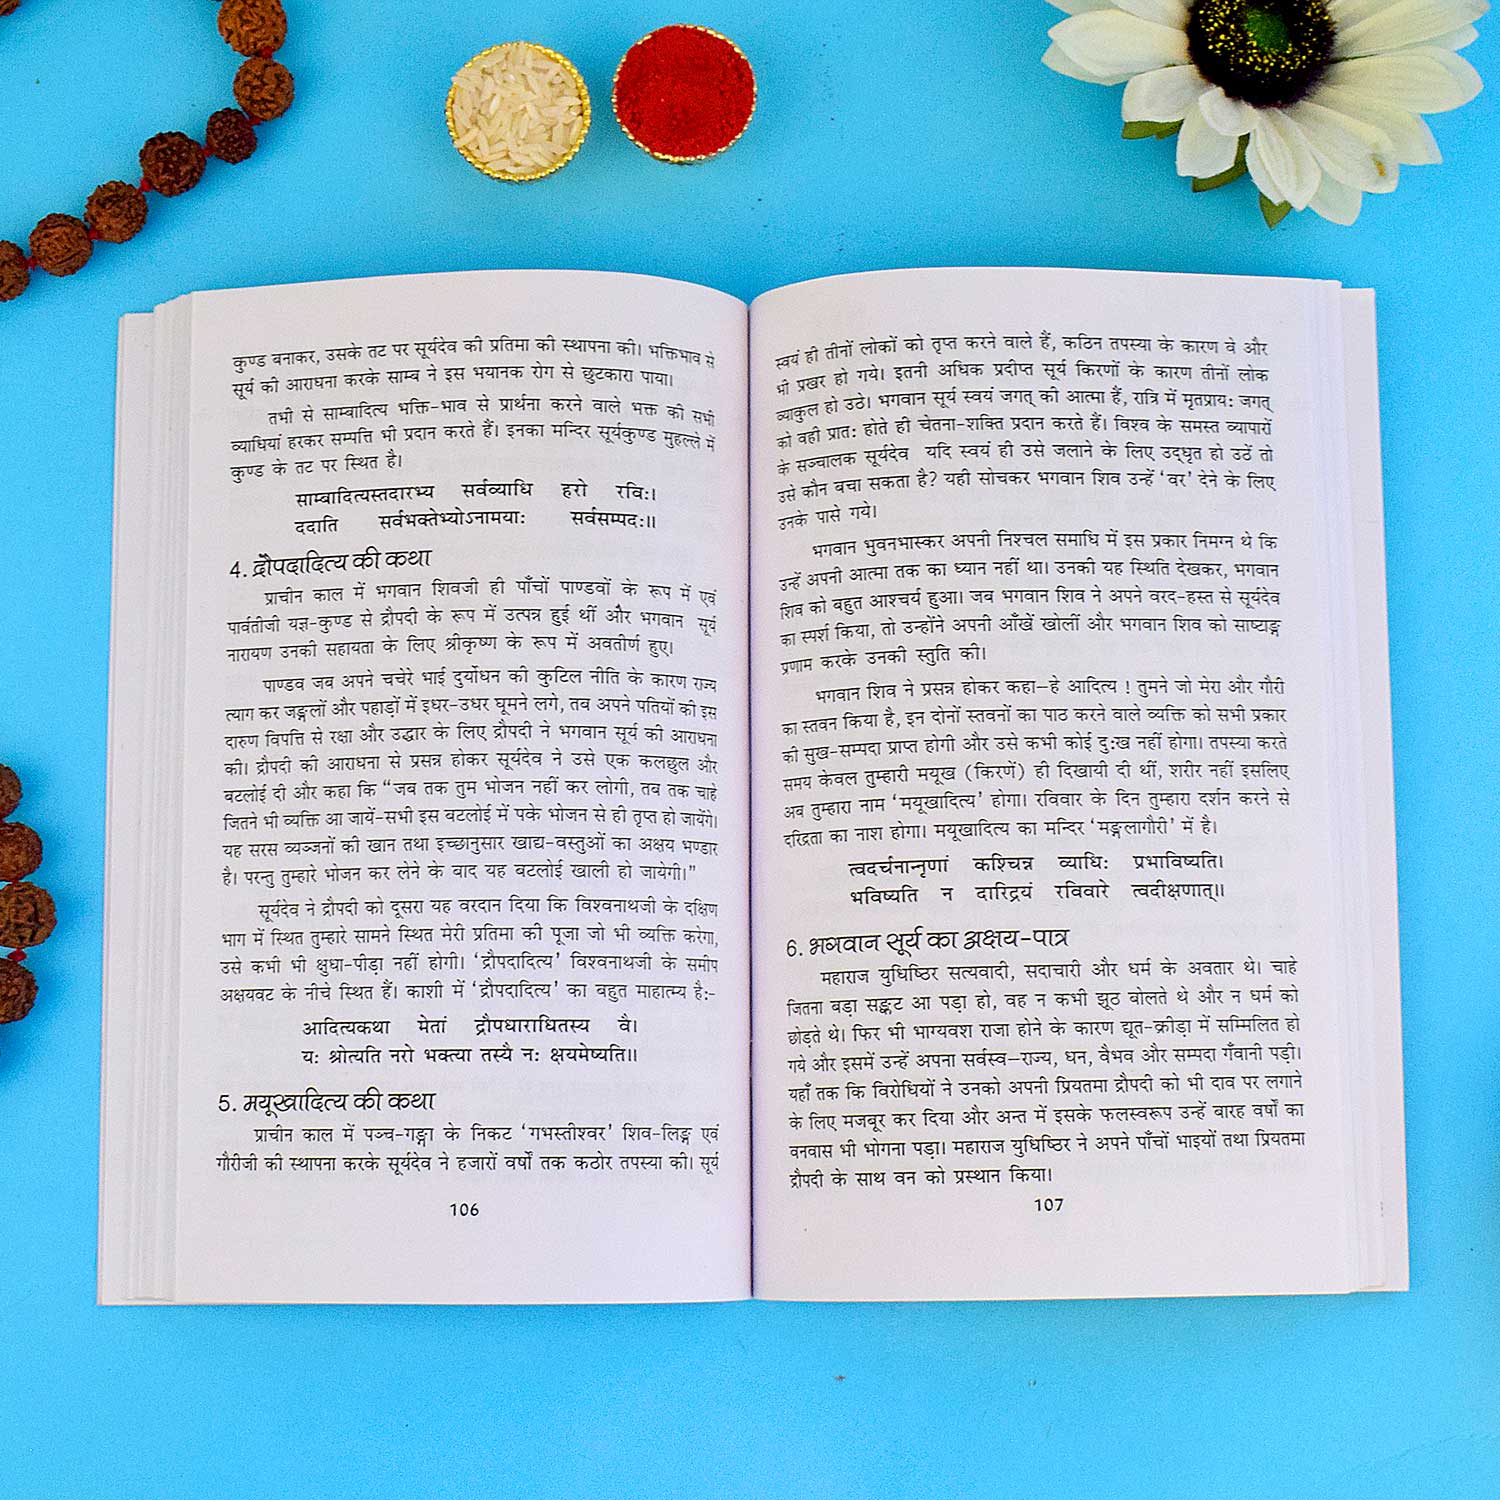 कुण्ड बनाकर, उसके तट पर सूर्यदेव की प्रतिमा की स्थापना की। भक्तिभाव से
सूर्य की आराधना करके साम्ब ने इस भयानक रोग से छुटकारा पाया।
तभी से साम्बादित्य भक्ति-भाव से प्रार्थना करने वाले भक्त की सभी
व्याधियां हरकर सम्पत्ति भी प्रदान करते हैं। इनका मन्दिर सूर्यकुण्ड मुहल्ले में
कुण्ड के तट पर स्थित है।
साम्बादित्यस्तदारभ्य सर्वव्याधि हरो रविः।
ददाति सर्वभक्तेभ्योऽनामयाः सर्वसम्पदः॥
4. द्रौपदादित्य की कथा
प्राचीन काल में भगवान शिवजी ही पाँचों पाण्डवों के रूप में एवं
पार्वतीजी यज्ञ-कुण्ड से द्रौपदी के रूप में उत्पन्न हुई थीं और भगवान सूर्य
नारायण उनकी सहायता के लिए श्रीकृष्ण के रूप में अवतीर्ण हुए।
पाण्डव जब अपने चचेरे भाई दुर्योधन की कुटिल नीति के कारण राज्य
त्याग कर जङ्गलों और पहाड़ों में इधर-उधर घूमने लगे, तब अपने पतियों की इस
दारुण विपत्ति से रक्षा और उद्धार के लिए द्रौपदी ने भगवान सूर्य की आराधना
की। द्रौपदी की आराधना से प्रसन्न होकर सूर्यदेव ने उसे एक कलछुल और
बटलोई दी और कहा कि “जब तक तुम भोजन नहीं कर लोगी, तब तक चाहे
जितने भी व्यक्ति आ जायें-सभी इस बटलोई में पके भोजन से ही तृप्त हो जायेंगे।
यह सरस व्यञ्जनों की खान तथा इच्छानुसार खाद्य-वस्तुओं का अक्षय भण्डार
है। परन्तु तुम्हारे भोजन कर लेने के बाद यह बटलोई खाली हो जायेगी।”
सूर्यदेव ने द्रौपदी को दूसरा यह वरदान दिया कि विश्वनाथजी के दक्षिण
भाग में स्थित तुम्हारे सामने स्थित मेरी प्रतिमा की पूजा जो भी व्यक्ति करेगा,
उसे कभी भी क्षुधा-पीड़ा नहीं होगी। ‘द्रौपदादित्य’ विश्वनाथजी के समीप
अक्षयवट के नीचे स्थित हैं। काशी में ‘द्रौपदादित्य’ का बहुत माहात्म्य है:-
आदित्यकथा मेतां द्रौपधाराधितस्य वै।
यः श्रोत्यति नरो भक्त्या तस्यै नः क्षयमेष्यति॥
5. मयूखादित्य की कथा
प्राचीन काल में पञ्च-गङ्गा के निकट ‘गभस्तीश्वर’ शिव-लिङ्ग एवं
गौरीजी की स्थापना करके सूर्यदेव ने हजारों वर्षों तक कठोर तपस्या की। सूर्य
106
स्वयं ही तीनों लोकों को तृप्त करने वाले हैं, कठिन तपस्या के कारण वे और
भी प्रखर हो गये। इतनी अधिक प्रदीप्त सूर्य किरणों के कारण तीनों लोक
व्याकुल हो उठे। भगवान सूर्य स्वयं जगत् की आत्मा हैं, रात्रि में मृतप्रायः जगत्
को वही प्रातः होते ही चेतना-शक्ति प्रदान करते हैं। विश्व के समस्त व्यापारों
के सञ्चालक सूर्यदेव यदि स्वयं ही उसे जलाने के लिए उद्धृत हो उठें तो
उसे कौन बचा सकता है? यही सोचकर भगवान शिव उन्हें ‘वर’ देने के लिए
उनके पासे गये।
भगवान भुवनभास्कर अपनी निश्चल समाधि में इस प्रकार निमग्न थे कि
उन्हें अपनी आत्मा तक का ध्यान नहीं था। उनकी यह स्थिति देखकर, भगवान
शिव को बहुत आश्चर्य हुआ। जब भगवान शिव ने अपने वरद-हस्त से सूर्यदेव
का स्पर्श किया, तो उन्होंने अपनी आँखें खोलीं और भगवान शिव को साष्टाङ्ग
प्रणाम करके उनकी स्तुति की।
भगवान शिव ने प्रसन्न होकर कहा–हे आदित्य ! तुमने जो मेरा और गौरी
का स्तवन किया है, इन दोनों स्तवनों का पाठ करने वाले व्यक्ति को सभी प्रकार
की सुख-सम्पदा प्राप्त होगी और उसे कभी कोई दुःख नहीं होगा। तपस्या करते
समय केवल तुम्हारी मयूख (किरणें) ही दिखायी दी थीं, शरीर नहीं इसलिए
अब तुम्हारा नाम ‘मयूखादित्य’ होगा। रविवार के दिन तुम्हारा दर्शन करने से
दरिद्रता का नाश होगा। मयूखादित्य का मन्दिर ‘मङ्गलागौरी’ में है।
त्वदर्चनान्नृणां कश्चिन्न व्याधिः प्रभाविष्यति।
भविष्यति न दारिद्रयं रविवारे त्वदीक्षणात्॥
6. भगवान सूर्य का अक्षय-पात्र
महाराज युधिष्ठिर सत्यवादी, सदाचारी और धर्म के अवतार थे। चाहे
जितना बड़ा सङ्कट आ पड़ा हो, वह न कभी झूठ बोलते थे और न धर्म को
छोड़ते थे। फिर भी भाग्यवश राजा होने के कारण द्यूत-क्रीड़ा में सम्मिलित हो
गये और इसमें उन्हें अपना सर्वस्व–राज्य, धन, वैभव और सम्पदा गँवानी पड़ी।
यहाँ तक कि विरोधियों ने उनको अपनी प्रियतमा द्रौपदी को भी दाव पर लगाने
के लिए मजबूर कर दिया और अन्त में इसके फलस्वरूप उन्हें बारह वर्षों का
वनवास भी भोगना पड़ा। महाराज युधिष्ठिर ने अपने पाँचों भाइयों तथा प्रियतमा
द्रौपदी के साथ वन को प्रस्थान किया।
107